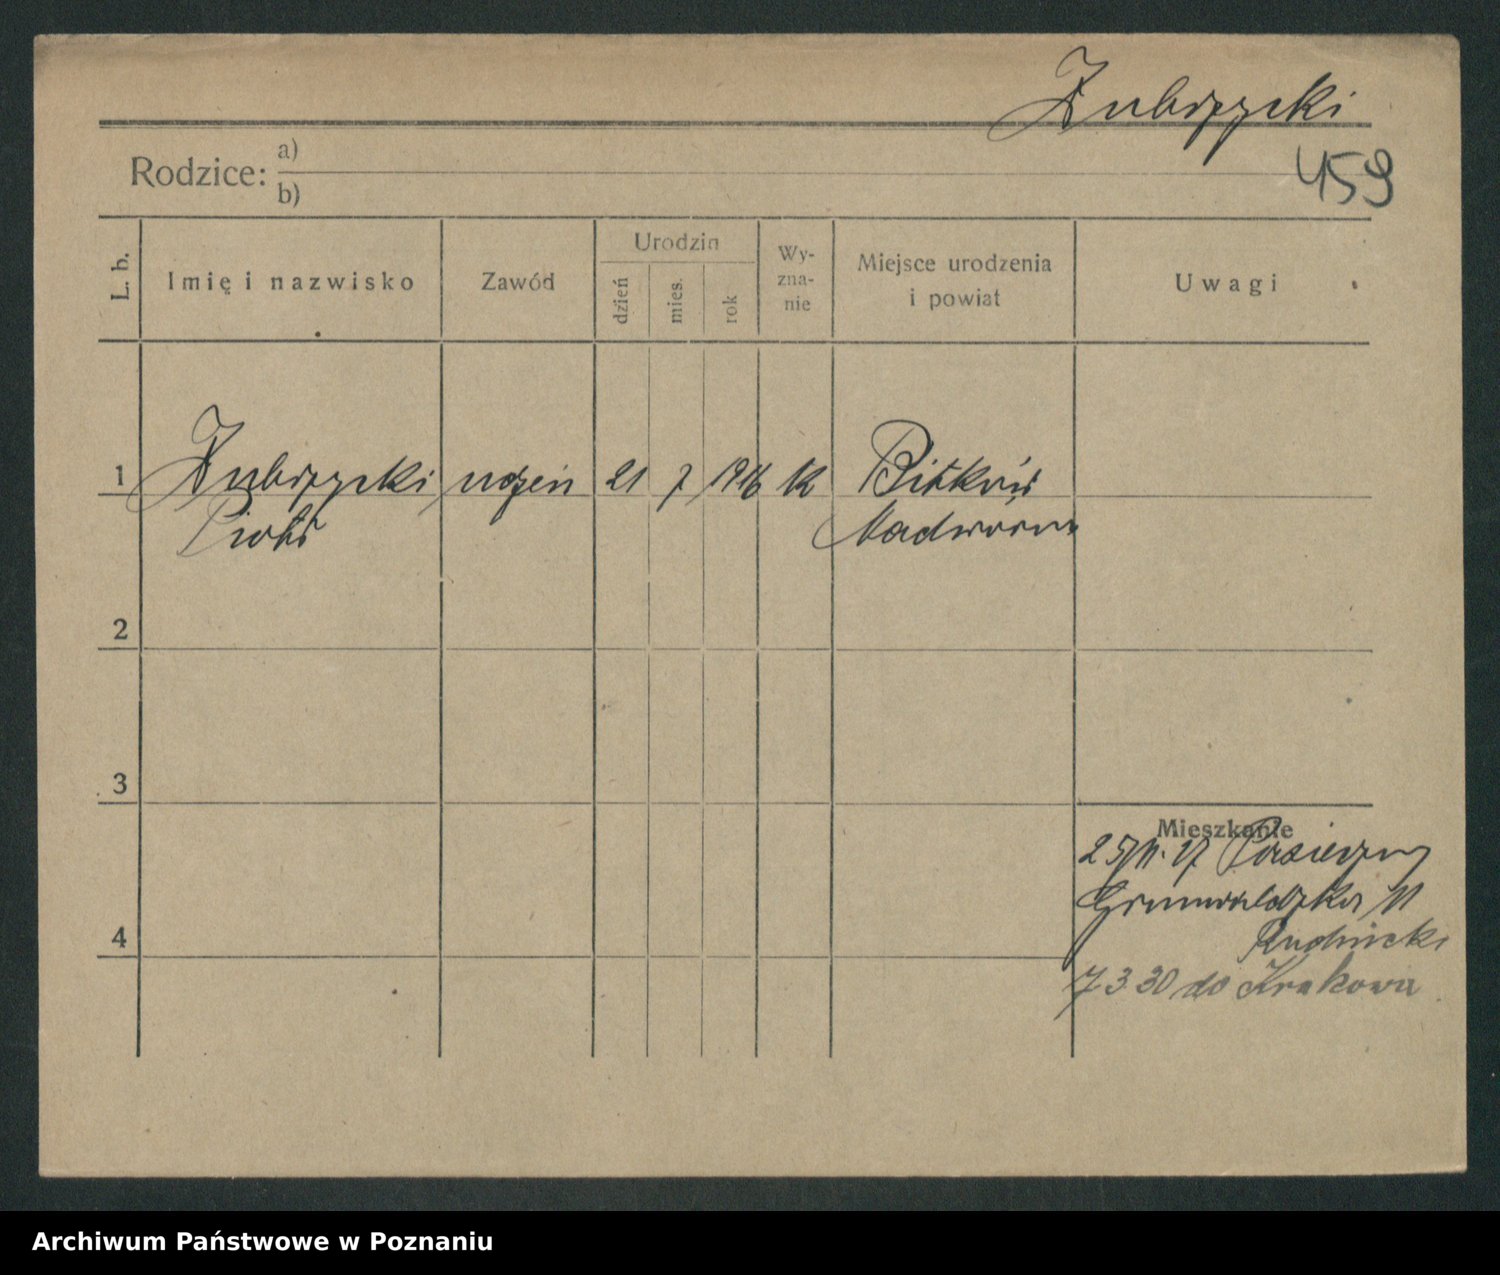 Zubrzycki
459
Rodzice: a)
b)
L. b.
Imię i nazwisko
Zawód
Urodzin
dzień
mies.
rok
Wy-
zna-
nie
Miejsce urodzenia
i powiat
Uwagi
1 Zubrzycki uczeń 21 7 1916 k Bitków
Piotr Nadwórna
2
3
4
Mieszkanie
27 Pasieczny
Grunwaldzka 11
Rudnicki
7 3 30 do Krakowa
Archiwum Państwowe w Poznaniu